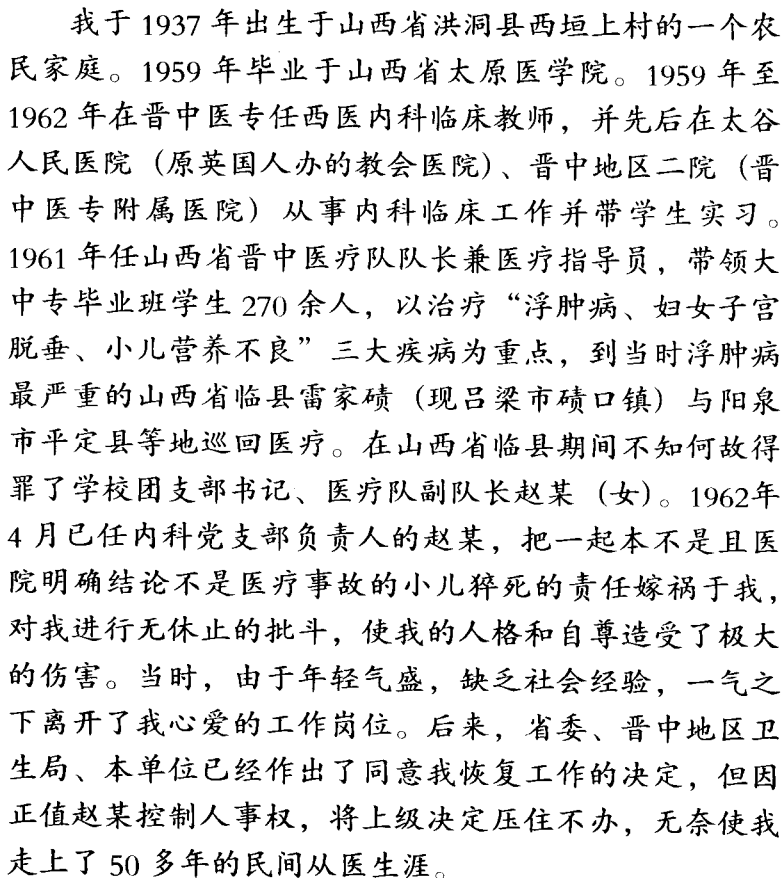 我于 1937 年出生于山西省洪洞县西垣上村的一个农
民家庭。1959 年毕业于山西省太原医学院。1959 年至
1962 年在晋中医专任西医内科临床教师，并先后在太谷
人民医院（原英国人办的教会医院）、晋中地区二院（晋
中医专附属医院）从事内科临床工作并带学生实习。
1961 年任山西省晋中医疗队队长兼医疗指导员，带领大
中专毕业班学生 270 余人，以治疗“浮肿病、妇女子宫
脱垂、小儿营养不良”三大疾病为重点，到当时浮肿病
最严重的山西省临县雷家碛（现吕梁市碛口镇）与阳泉
市平定县等地巡回医疗。在山西省临县期间不知何故得
罪了学校团支部书记、医疗队副队长赵某（女）。1962年
4 月已任内科党支部负责人的赵某，把一起本不是且医
院明确结论不是医疗事故的小儿猝死的责任嫁祸于我，
对我进行无休止的批斗，使我的人格和自尊造受了极大
的伤害。当时，由于年轻气盛，缺乏社会经验，一气之
下离开了我心爱的工作岗位。后来，省委、晋中地区卫
生局、本单位已经作出了同意我恢复工作的决定，但因
正值赵某控制人事权，将上级决定压住不办，无奈使我
走上了 50 多年的民间从医生涯。